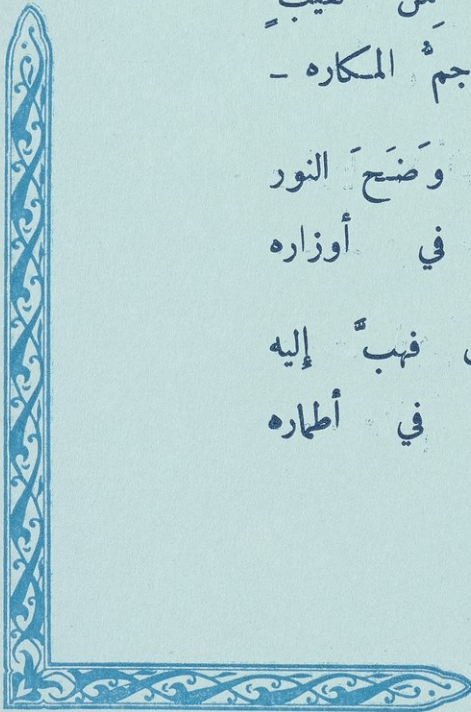 جمُّ المكاره –
وَضَحَ النور
في أوزاره
فهبَّ إليه
في أطماره